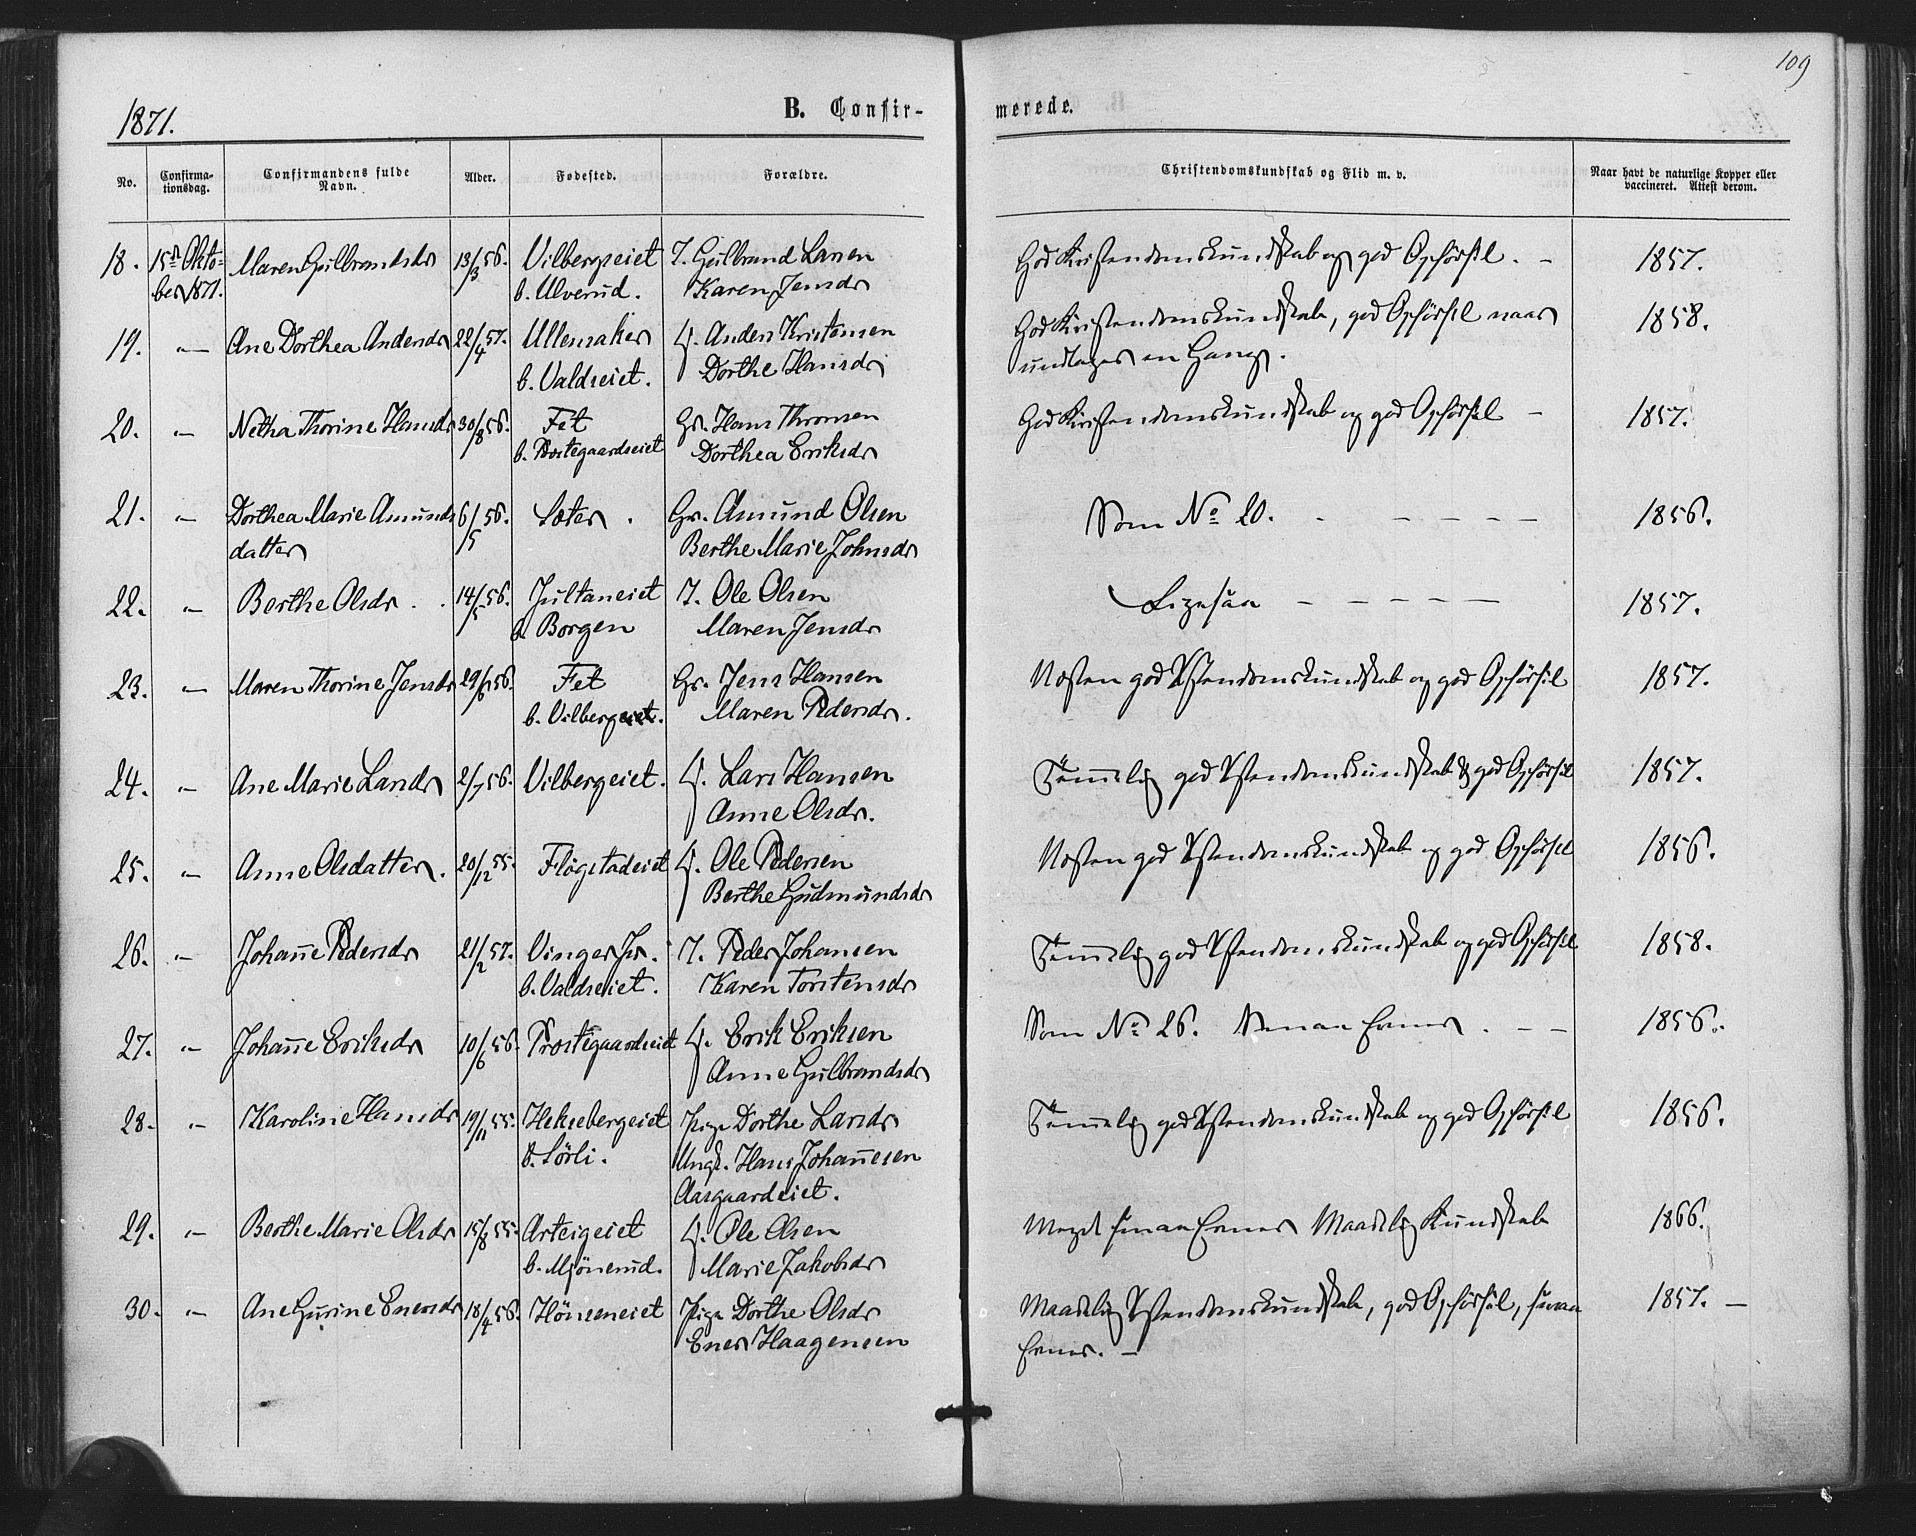 109
1871.
B. Confir-
merede.
No.
Confirma-
tionsdag.
Confirmandens fulde
Navn.
Alder.
Fødested.
Forældre.
Christendomskundskab og Flid m. v.
Naar havt de naturlige Kopper eller
vaccineret. Attest derom.
18. 15de Okto- Maren Gulbrandsdr 13/3 56. Vilbergseiet I. Gulbrand Larsen God Kristendomskundskab og god Opførsel. - 1857.
ber 1871. b. Ulverud. Karen Jensdr
19. " Ane Dorthea Andersdr 22/4 57. Ullensaker Anders Kristensen God Kristendomskundskab, god Opførsel naar 1858.
b. Valdseiet. Dorthe Hansdr undtages en Gang.
20. " Netha Thorine Hansdr 30/8 56. Fet Gr. Hans Thronsen God Kristendomskundskab og god Opførsel - 1857.
b. Prestegaardseiet Dorthea Eriksdr
21. " Dorthea Marie Amunds 6/5 56. Sæter. Gr. Amund Olsen Som No 20. - - - - - 1856.
datter Berthe Marie Johnsdr
22. " Berthe Olsdr. 14/5 56. Jultaneiet I. Ole Olsen Ligesaa - - - - - 1857.
b. Borgen Maren Jensdr
23. " Maren Thorine Jensdr 29/6 56. Fet Gr. Jens Hansen Næsten god Xstendomskundskab og god Opførsel 1857.
b. Vilbergeiet. Maren Pedersdr.
24. " Ane Marie Larsdr 2/7 56. Vilbergeiet. Lars Hansen Temmelig god Xstendomskundskab & god Opførsel 1857.
Anne Olsdr.
25. " Anne Olsdatter. 20/12 55. Flögstadeiet Ole Pedersen Næsten god Xstendomskundskab og god Opførsel 1856.
Berthe Gudmundsdr
26. " Johanne Pedersdr 21/2 57. Vinger Pr. I. Peder Johansen Temmelig god Xstendomskundskab og god Opførsel 1858.
b. Valdseiet. Karen Torstensdr
27. " Johanne Eriksdr 10/6 56. Prestegaardseiet Erik Eriksen Som No 26. Svage Evner. - - 1856.
Anne Gulbrandsdr
28. " Karoline Hansdr 19/11 55. Heksebergeiet Pige Dorthe Larsdr Temmelig god Xstendomskundskab og god Opførsel 1856.
b. Sörli. Ungk. Hans Johannesen
Aasgaardeiet.
29. " Berthe Marie Olsdr 15/8 55. Arteigeiet Ole Olsen Meget smaa Evner Maadelig Kundskab 1866.
b. Mjönerud. Marie Jakobsdr
30. " Ane Gurine Enersdr 18/4 56. Hönseneiet Pige Dorthe Olsdr Maadelig Xstendomskundskab, god Opførsel, smaa 1857. -
Ener Haagensen Evner. -